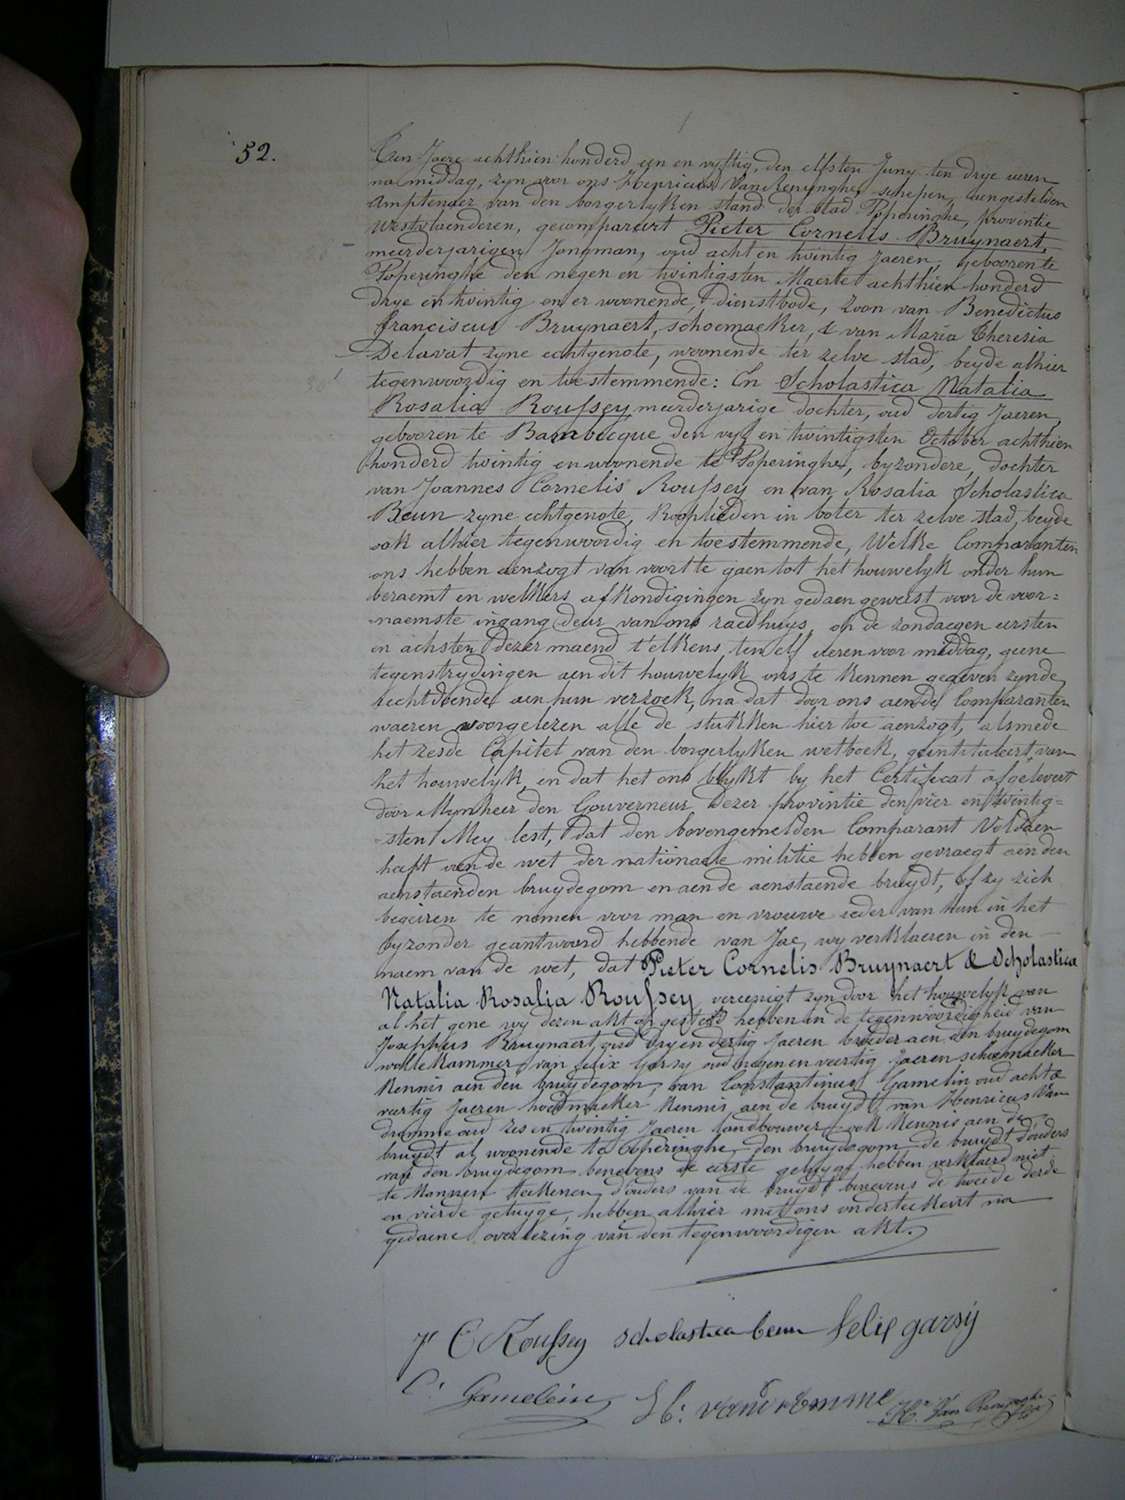 52.
Den Jaere achthien honderd een en vyftig, den elfsten Juny ten drye ueren
na middag, zyn voor ons Henricus schepen, aengestelden
Amptenaer van den borgerlyken stand der stad Poperinghe, provintie
Westvlaenderen, gecompareert Pieter Cornelis Bruynaert,
meerderjarigen Jongman, oud acht en twintig Jaeren, gebooren te
Poperinghe den negen en twintigsten Maerte achthien honderd
drye en twintig en er woonende, dienstbode, zoon van Benedictus
franciscus Bruynaert, schoemaeker, & van Maria Theresia
Delavat zyne echtgenote, woonende ter zelve stad, beyde alhier
tegenwoordig en toestemmende: En Scholastica Natalia
Rosalia Roussey meerderjarige dochter, oud dertig Jaeren,
gebooren te Bambecque den vyf en twintigsten October achthien
honderd twintig en woonende te Poperinghe, byzondere, dochter
van Joannes Cornelis Roussey en van Rosalia Scholastica
Beun zyne echtgenote, kooplieden in boter ter zelve stad, beyde
ook alhier tegenwoordig en toestemmende, Welke Comparanten
ons hebben aenzogt van voort te gaen tot het houwelyk onder hun
beraemt en welkers afkondigingen zyn gedaen geweest voor de voor=
naemste ingang deur van ons raedhuys, op de zondaegen eersten
en achsten dezer maend t'elkens, ten elf ueren voor middag, geene
tegenstrydingen aen dit houwelyk ons te kennen gegeven zynde,
rechtdoende aen hun verzoek, na dat door ons aen de Comparanten
waeren voorgelezen alle de stukken hier toe aenzogt, alsmede
het zesde Capitel van den borgerlyken wetboek, geintituleert, van
het houwelyk, en dat het ons blykt by het Certificat afgelevert
door Mynheer den Gouverneur dezer provintie den vier en twintig=
sten Mey lest, dat den bovengemelden Comparant Voldaen
heeft aen de wet der nationaele militie hebben gevraegt aen den
aenstaenden bruydegom en aen de aenstaende bruydt, of zy zich
begeiren te nemen voor man en vrouwe ieder van hun in het
byzonder geantwoord hebbende van Jae, wy verklaeren in den
naem van de wet, dat Pieter Cornelis Bruynaert & Scholastica
Natalia Rosalia Roussey vereenigt zyn door het houwelyk van
al het gene wy dezen akt opgesteld hebben in de tegenwoordigheid van
Josephus Bruynaert, oud dry en dertig Jaeren broeder aen den bruydegom
wollekammer, van felix Garsy oud negen en veertig Jaeren schoemaeker
kennis aen den bruydegom, van Constantinus Gamelin oud acht &
veertig Jaeren hoedmaeker kennis aen de bruydt, van Henricus Van
dromme oud zes en twintig Jaeren landbouwer ook kennis aen de
bruydt al woonende te Poperinghe, den bruydegom, de bruydt d'ouders
van den bruydegom benevens de eerste getuyge hebben verklaerd niet
te kannen teekenen, d'ouders van de bruydt benevens de tweede derde
en vierde getuyge, hebben alhier met ons onderteekent na
gedaene overlezing van den tegenwoordigen akt.
J C Roussey scholastica beun felix garsÿ
C. Gamelein H. vandromme